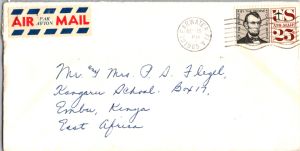 AIR PAR AVION MAIL
US
AIR MAIL
25
Mr. & Mrs. P. S. Flegel,
Kangaru School. Box 17,
Embu, Kenya
East Africa